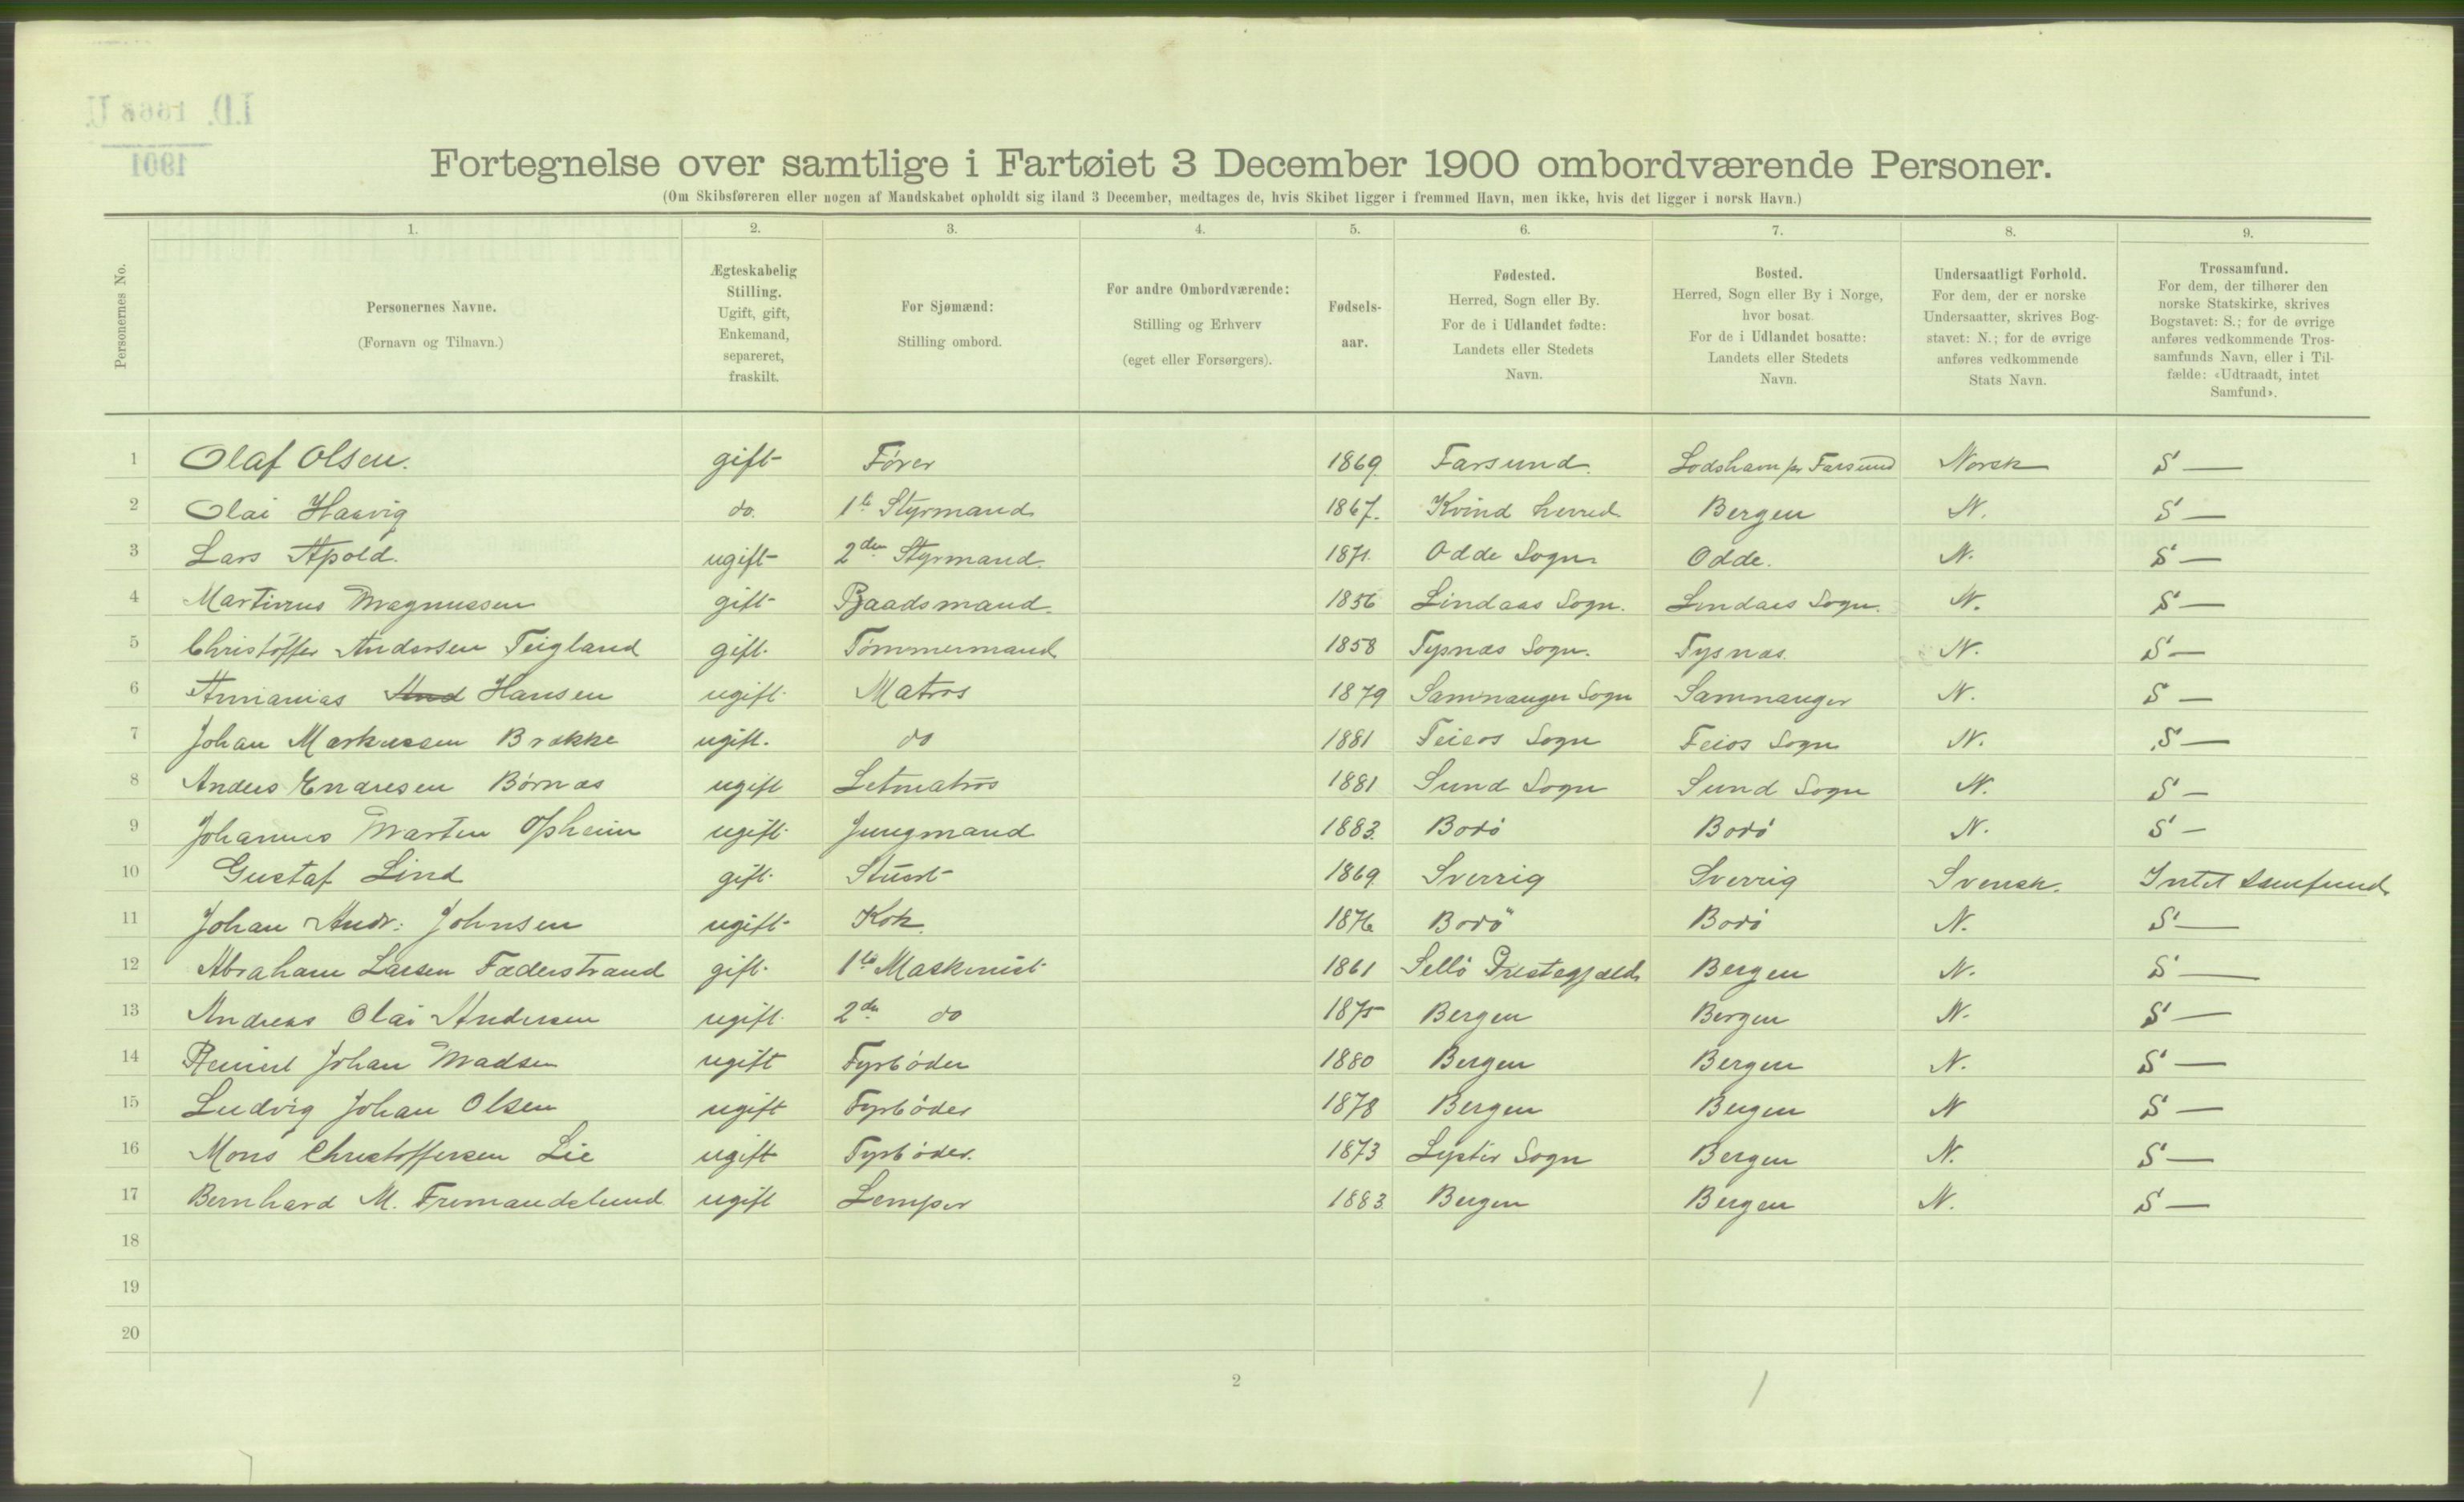 I.D. 1668 U
1901
Fortegnelse over samtlige i Fartøiet 3 December 1900 ombordværende Personer.
(Om Skibsføreren eller nogen af Mandskabet opholdt sig iland 3 December, medtages de, hvis Skibet ligger i fremmed Havn, men ikke, hvis det ligger i norsk Havn.)
Personernes No.
1. Personernes Navne. (Fornavn og Tilnavn.)
2. Ægteskabelig Stilling. Ugift, gift, Enkemand, separeret, fraskilt.
3. For Sjømænd: Stilling ombord.
4. For andre Ombordværende: Stilling og Erhverv (eget eller Forsørgers).
5. Fødsels-aar.
6. Fødested. Herred, Sogn eller By. For de i Udlandet fødte: Landets eller Stedets Navn.
7. Bosted. Herred, Sogn eller By i Norge, hvor bosat. For de i Udlandet bosatte: Landets eller Stedets Navn.
8. Undersaatligt Forhold. For dem, der er norske Undersaatter, skrives Bogstavet: N.; for de øvrige anføres vedkommende Stats Navn.
9. Trossamfund. For dem, der tilhører den norske Statskirke, skrives Bogstavet: S.; for de øvrige anføres vedkommende Trossamfunds Navn, eller i Tilfælde: «Udtraadt, intet Samfund».
1 Olaf Olsen. gift Fører 1869 Farsund. Lodshavn pr Farsund Norsk S —
2 Olai Haavig do. 1ste Styrmand 1867. Kvindherred Bergen N. S —
3 Lars Apold. ugift 2den Styrmand. 1871. Odde Sogn Odde. N. S —
4 Martinus Magnussen gift Baadsmand. 1856 Lindaas Sogn. Lindaas Sogn. N. S —
5 Christoffer Andersen Teigland gift. Tømmermand 1858 Tysnæs Sogn. Tysnæs. N. S —
6 Annanias And Hansen ugift. Matros 1879 Samnanger Sogn Samnanger N. S —
7 Johan Markussen Brække ugift. do 1881 Feios Sogn Feios Sogn N. S —
8 Anders Endresen Børnæs ugift Letmatros 1881 Sund Sogn Sund Sogn N. S —
9 Johannes Marten Opheim ugift. Jungmand 1883. Bodø Bodø N. S —
10 Gustaf Lind gift. Stuert 1869. Sverrig Sverrig Svensk. Intet Samfund
11 Johan Andr: Johnsen ugift Kok 1876 Bodø Bodø N. S —
12 Abraham Larsen Fæderstrand gift. 1ste Maskinist 1861 Sellø Prestegjæld Bergen N. S —
13 Andreas Olai Andersen ugift. 2den do 1875 Bergen Bergen N. S —
14 Johan Madsen ugift Fyrbøder 1880 Bergen Bergen N. S —
15 Ludvig Johan Olsen ugift Fyrbøder 1878 Bergen Bergen N S —
16 Mons Christoffersen Lie ugift Fyrbøder. 1873 Lyster Sogn Bergen N. S —
17 Bernhard M. ugift Lemper 1883. Bergen Bergen N. S —
18
19
20
2